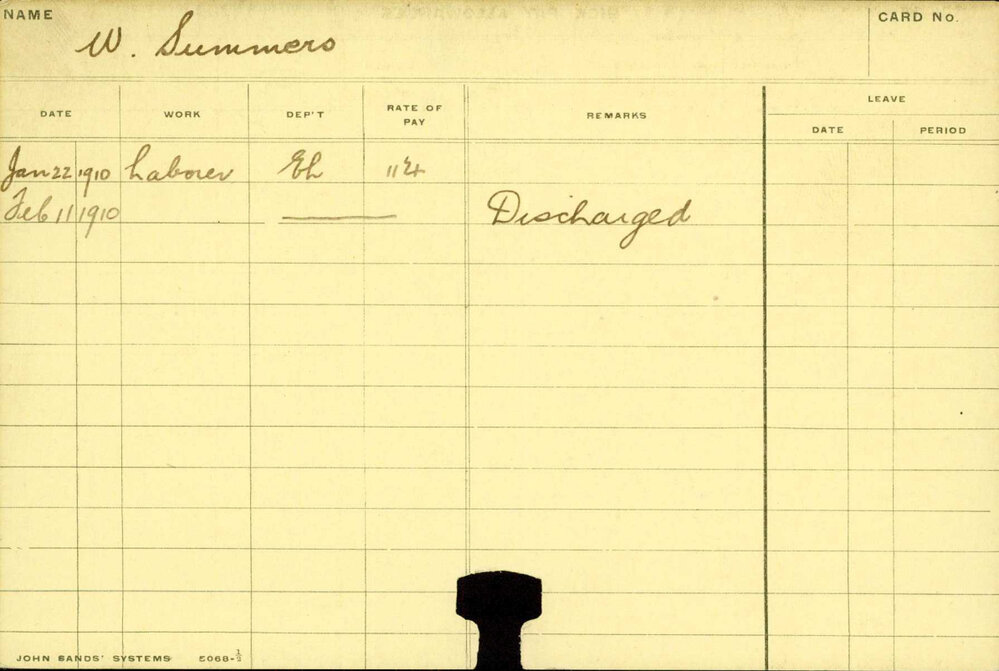 NAME W. Summers CARD No.
LEAVE
DATE WORK DEP'T RATE OF PAY REMARKS DATE PERIOD
Jan 22 1910 Laborer Eh
Feb 11 1910 Discharged
JOHN SANDS' SYSTEMS 5068-½